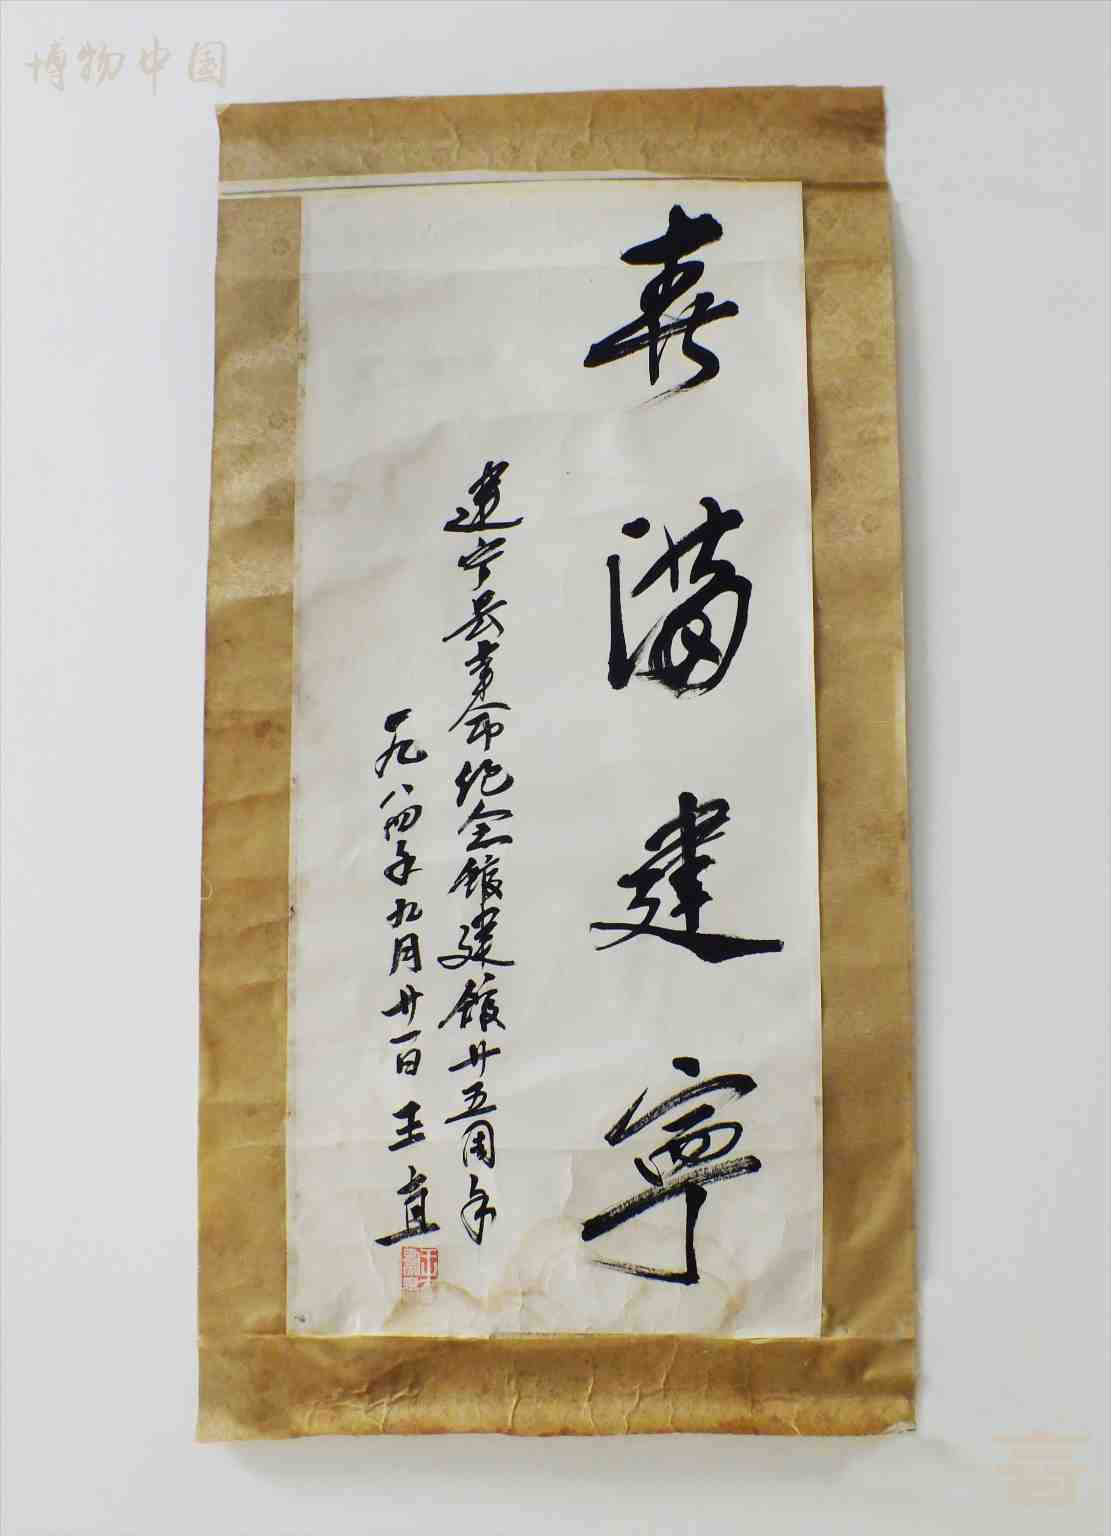 博物中国
春满建寧
建宁县革命纪念馆建馆廿五周年
一九八四年九月廿一日 王直